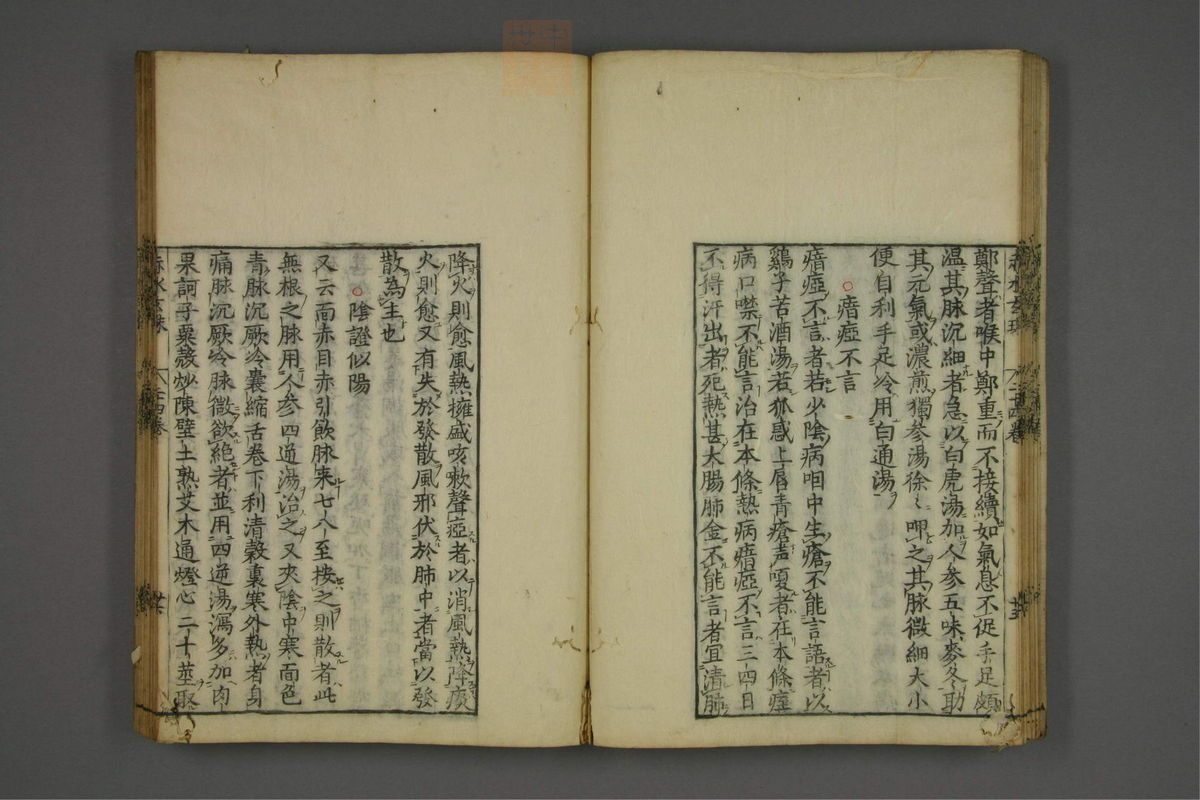 鄭聲者喉中鄭重而不接續如氣息不促手足頗
温其脉沉細者急以白虎湯加人參五味麥冬助
其元氣或濃煎獨參湯徐〻呷之其脉微細大小
便自利手足冷用白通湯
○瘖瘂不言
瘖瘂不言者若少陰病咽中生瘡不能言語者以
鷄子苦酒湯若狐惑上唇青瘡声嗄者在本條痙
病口噤不能言治在本條熱病瘖瘂不言三四日
不得汗出者死熱甚大腸肺金不能言者宜清肺
降火則愈風熱擁盛咳嗽聲瘂者以消風熱降痰
火則愈又有失於發散風邪伏於肺中者當以發
散為主也
○陰證似陽
又云面赤目赤引飲脉来七八至按之則散者此
無根之脉用人参四逆湯治之又夾陰中寒面色
青脉沉厥冷囊縮舌卷下利清穀裏寒外熱者身
痛脉沉厥冷脉微欲絶者並用四逆湯瀉多加肉
果訶子粟殼炒陳壁土熟艾木通燈心二十莖聚